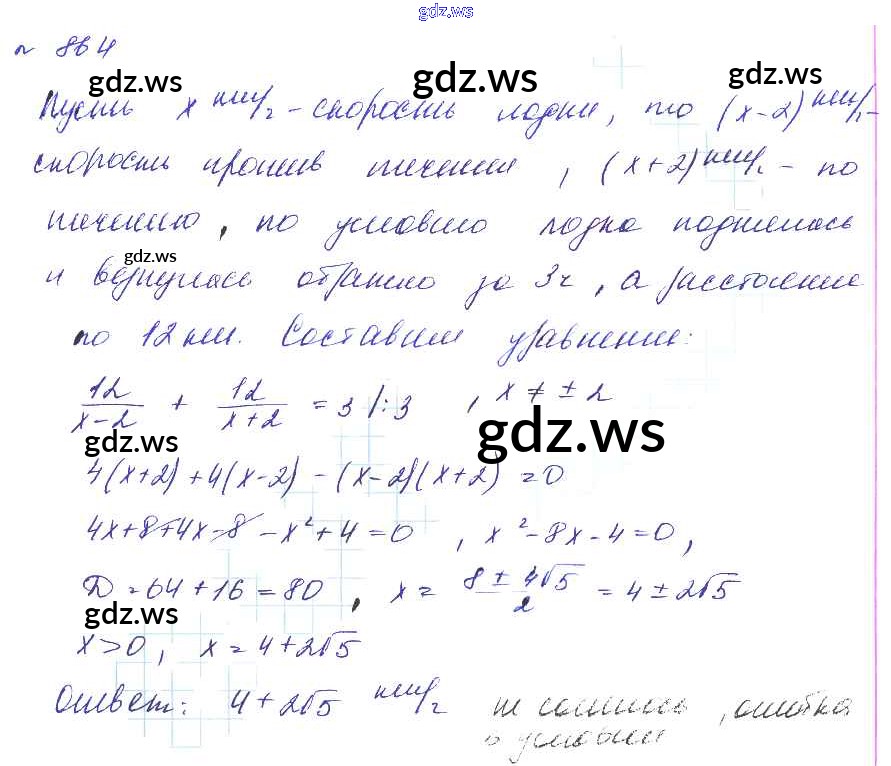 gdz.ws
№ 864
gdz.ws gdz.ws gdz.ws
Пусть x км/ч - скорость лодки, то (x-2) км/ч -
скорость против течения, (x+2) км/ч - по
течению, по условию лодка поднялась
gdz.ws
и вернулась обратно за 3ч, а расстояние
по 12 км. Составим уравнение:
12/(x-2) + 12/(x+2) = 3 /:3 , x ≠ ± 2
gdz.ws gdz.ws
4(x+2) + 4(x-2) - (x-2)(x+2) = 0
4x+8+4x-8-x²+4=0 , x²-8x-4=0,
D=64+16=80 , x = (8 ± 4√5)/2 = 4 ± 2√5
gdz.ws
x>0, x = 4+2√5
Ответ: 4+2√5 км/ч
не сошлось, ошибка
в условии